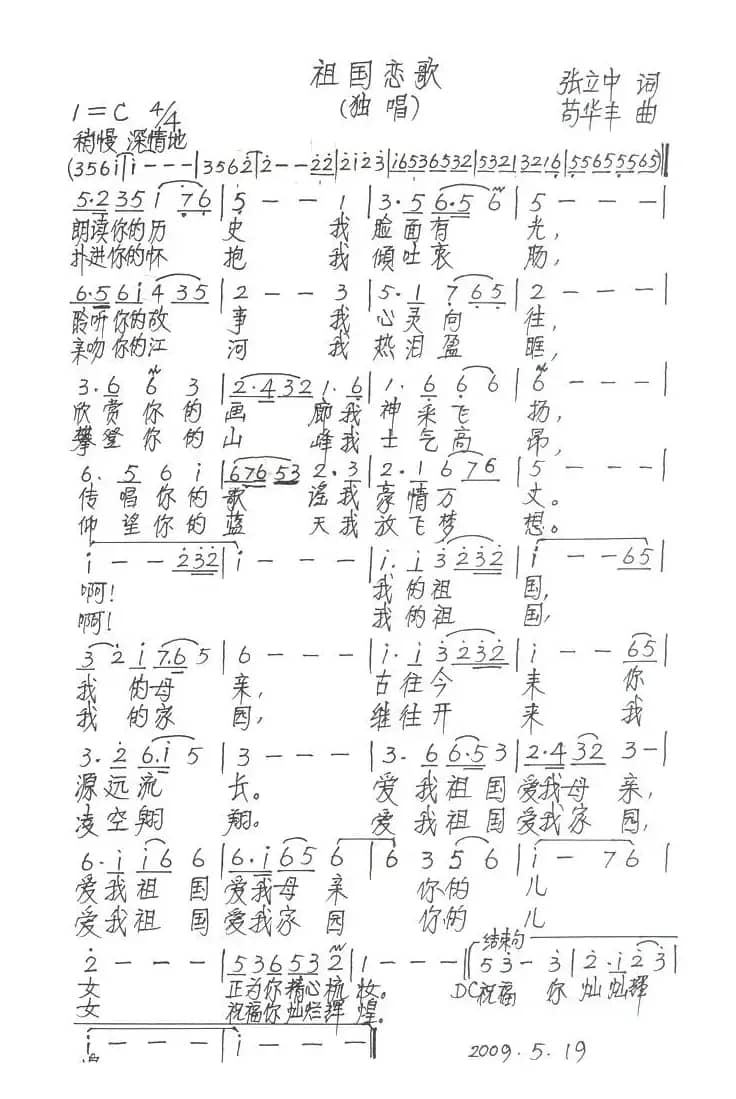 祖国恋歌
(独唱)
张立中 词
苟华丰 曲
1=C 4/4
稍慢 深情地
(356i | i - - - | 3562 | 2 - - 22 | 2123 | i6536532 | 5321 | 3216 | 55655565)‖
5·235 i 76 | 5 - - 1 | 3·5 6·5 6 | 5 - - - |
朗读你的历 史 我 脸面有 光,
扑进你的怀 抱 我 倾吐衷 肠,
6·5 6i 4 35 | 2 - - 3 | 5·1 7 65 | 2 - - - |
聆听你的故 事 我 心灵向 往,
亲吻你的江 河 我 热泪盈 眶,
3·6 6 3 | 2·432 1·6 | 1·6 6 6 | 6 - - - |
欣赏你的画 廊我 神采飞 扬,
攀登你的山 峰我 士气高 昂,
6·5 6 i | 676 53 2·3 | 2·1 6 76 | 5 - - |
传唱你的歌 谣我 豪情万 丈。
仰望你的蓝 天我 放飞梦 想。
i - - 232 | i - - - | i·i 3 232 | i - - 65 |
啊! 我的祖 国,
啊! 我的祖 国,
3 2 i 7·6 5 | 6 - - - | i·i 3 232 | i - - 65 |
我的母 亲, 古往今 来 你
我的家 园, 继往开 来 我
3·2 6·i 5 | 3 - - - | 3·6 6·5 3 | 2·4 32 3 - |
源远流 长。 爱我祖国爱我母 亲,
凌空翱 翔。 爱我祖国爱我家 园,
6·i i6 6 | 6·i 65 6 | 6 3 5 6 | i - 7 6 |
爱我祖 国 爱我母 亲 你的 儿
爱我祖 国 爱我家 园 你的 儿
结束句
2 - - - | 536532 | 1 - - - ‖ 53 - 3 | 2·i 2 3 |
女 正为你精心梳 妆。 DC祝福 你 灿灿辉
女 祝福你灿烂辉 煌。
i - - - | i - - - ‖
煌
2009.5.19